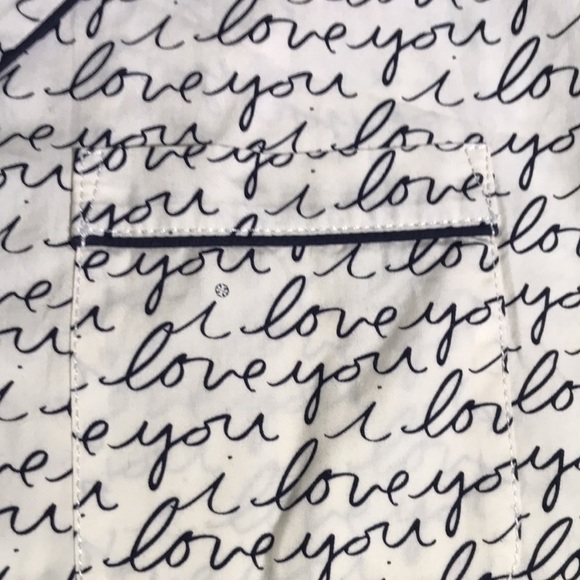 i love you
i love you i lov
ve you i love yo
love you
you i love
you i lov
i love you
love you i
e you i lov
i love you
love you i